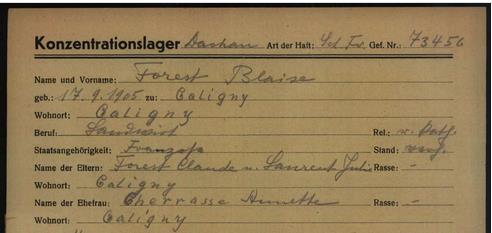 Konzentrationslager Dachau Art der Haft: Sch Fr. Gef. Nr.: 73456
Name und Vorname: Forest Blaise
geb.: 17.9.1905 zu: Caligny
Wohnort: Caligny
Beruf: Landwirt Rel.: r. kath.
Staatsangehörigkeit: Franzose Stand: verh.
Name der Eltern: Forest Claude u. Laurent Julie Rasse: -
Wohnort: Caligny
Name der Ehefrau: Cherrasse Annette Rasse: -
Wohnort: Caligny